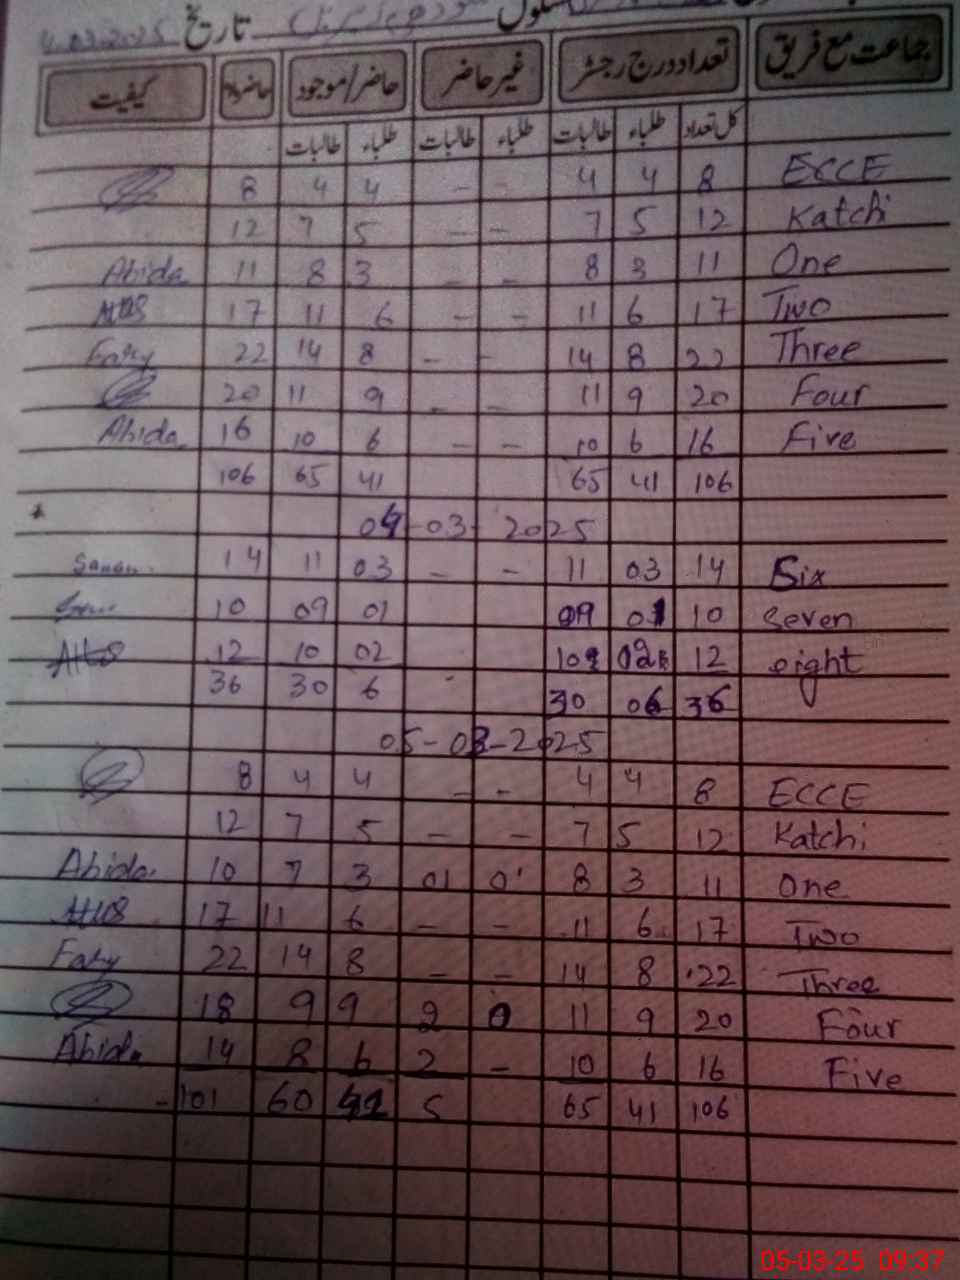 سکول تاریخ 4.03.2025
جماعت مع فریق تعداد درج رجسٹر غیر حاضر حاضر/موجود حاضر% کیفیت
کل تعداد طلباء طالبات طلباء طالبات طلباء طالبات
8 4 4 - - 4 4 8 ECCE
12 7 5 - - 7 5 12 Katchi
Abida 11 8 3 - - 8 3 11 One
17 11 6 - - 11 6 17 Two
22 14 8 - - 14 8 22 Three
20 11 9 - - 11 9 20 Four
Abida 16 10 6 - - 10 6 16 Five
106 65 41 65 41 106
04-03-2025
14 11 03 - - 11 03 14 Six
10 09 01 09 01 10 Seven
12 10 02 10 02 12 eight
36 30 6 30 06 36
05-03-2025
8 4 4 - - 4 4 8 ECCE
12 7 5 - - 7 5 12 Katchi
Abida 10 7 3 01 0 8 3 11 One
17 11 6 - - 11 6 17 Two
22 14 8 - - 14 8 22 Three
18 9 9 2 0 11 9 20 Four
Abida 14 8 6 2 - 10 6 16 Five
101 60 5 65 41 106
05-03-25 09:37